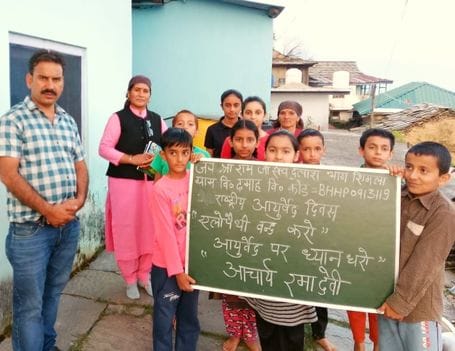 जय श्री राम स्वस्थ दुलारा भाग शिमला
ग्राम वि० दमोह वि० कोड-BHHP0913119
राष्ट्रीय आयुर्वेद दिवस
"एलोपैथी बन्द करो"
"आयुर्वेद पर ध्यान धरो"
"आचार्य रमा देवी